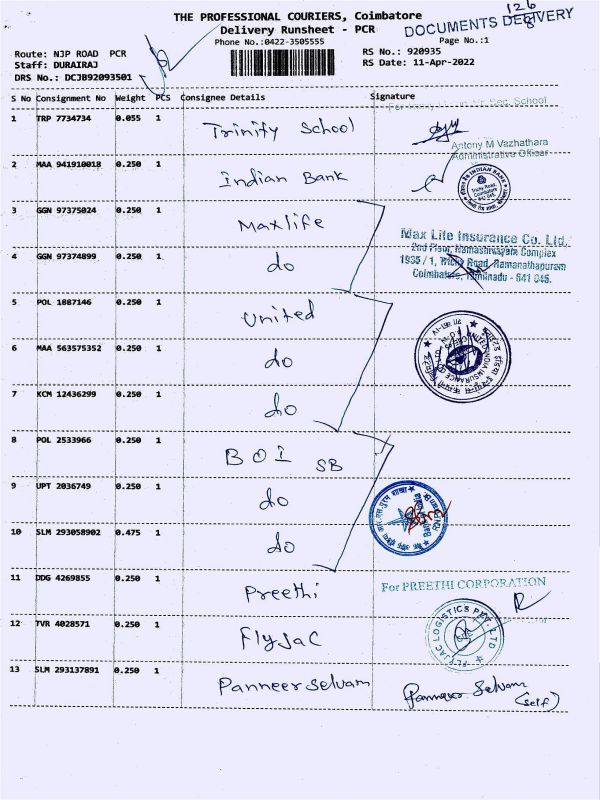 THE PROFESSIONAL COURIERS, Coimbatore
126
8
Delivery Runsheet - PCR
DOCUMENTS DELIVERY
Phone No.:0422-3505555
Page No.:1
Route: NJP ROAD PCR
RS No.: 920935
Staff: DURAIRAJ
RS Date: 11-Apr-2022
DRS No.: DCJB92093501
S No Consignment No Weight PCS Consignee Details Signature
1 TRP 7734734 0.055 1 Trinity School
Sec. School
Antony M Vazhathara
Administrative Officer
2 MAA 941910018 0.250 1 Indian Bank
INDIAN BANK
Trichy Road,
Coimbatore
641 045
3 GGN 97375024 0.250 1 Maxlife
Max Life Insurance Co. Ltd.
2nd Floor, Ramashwayam Complex
4 GGN 97374899 0.250 1 do
1935 / 1, Trichy Road, Ramanathapuram
Coimbatore, Tamilnadu - 641 045.
5 POL 1887146 0.250 1 United
6 MAA 563575352 0.250 1 do
7 KCM 12436299 0.250 1 do
8 POL 2533966 0.250 1 BOI SB
9 UPT 2036749 0.250 1 do
10 SLM 293058902 0.475 1 do
11 DDG 4269855 0.250 1 Preethi
For PREETHI CORPORATION
12 TVR 4028571 0.250 1 Flyjac
FLYJAC LOGISTICS PVT. LTD
13 SLM 293137891 0.250 1 Panneerselvam
Panneer Selvam
(self)